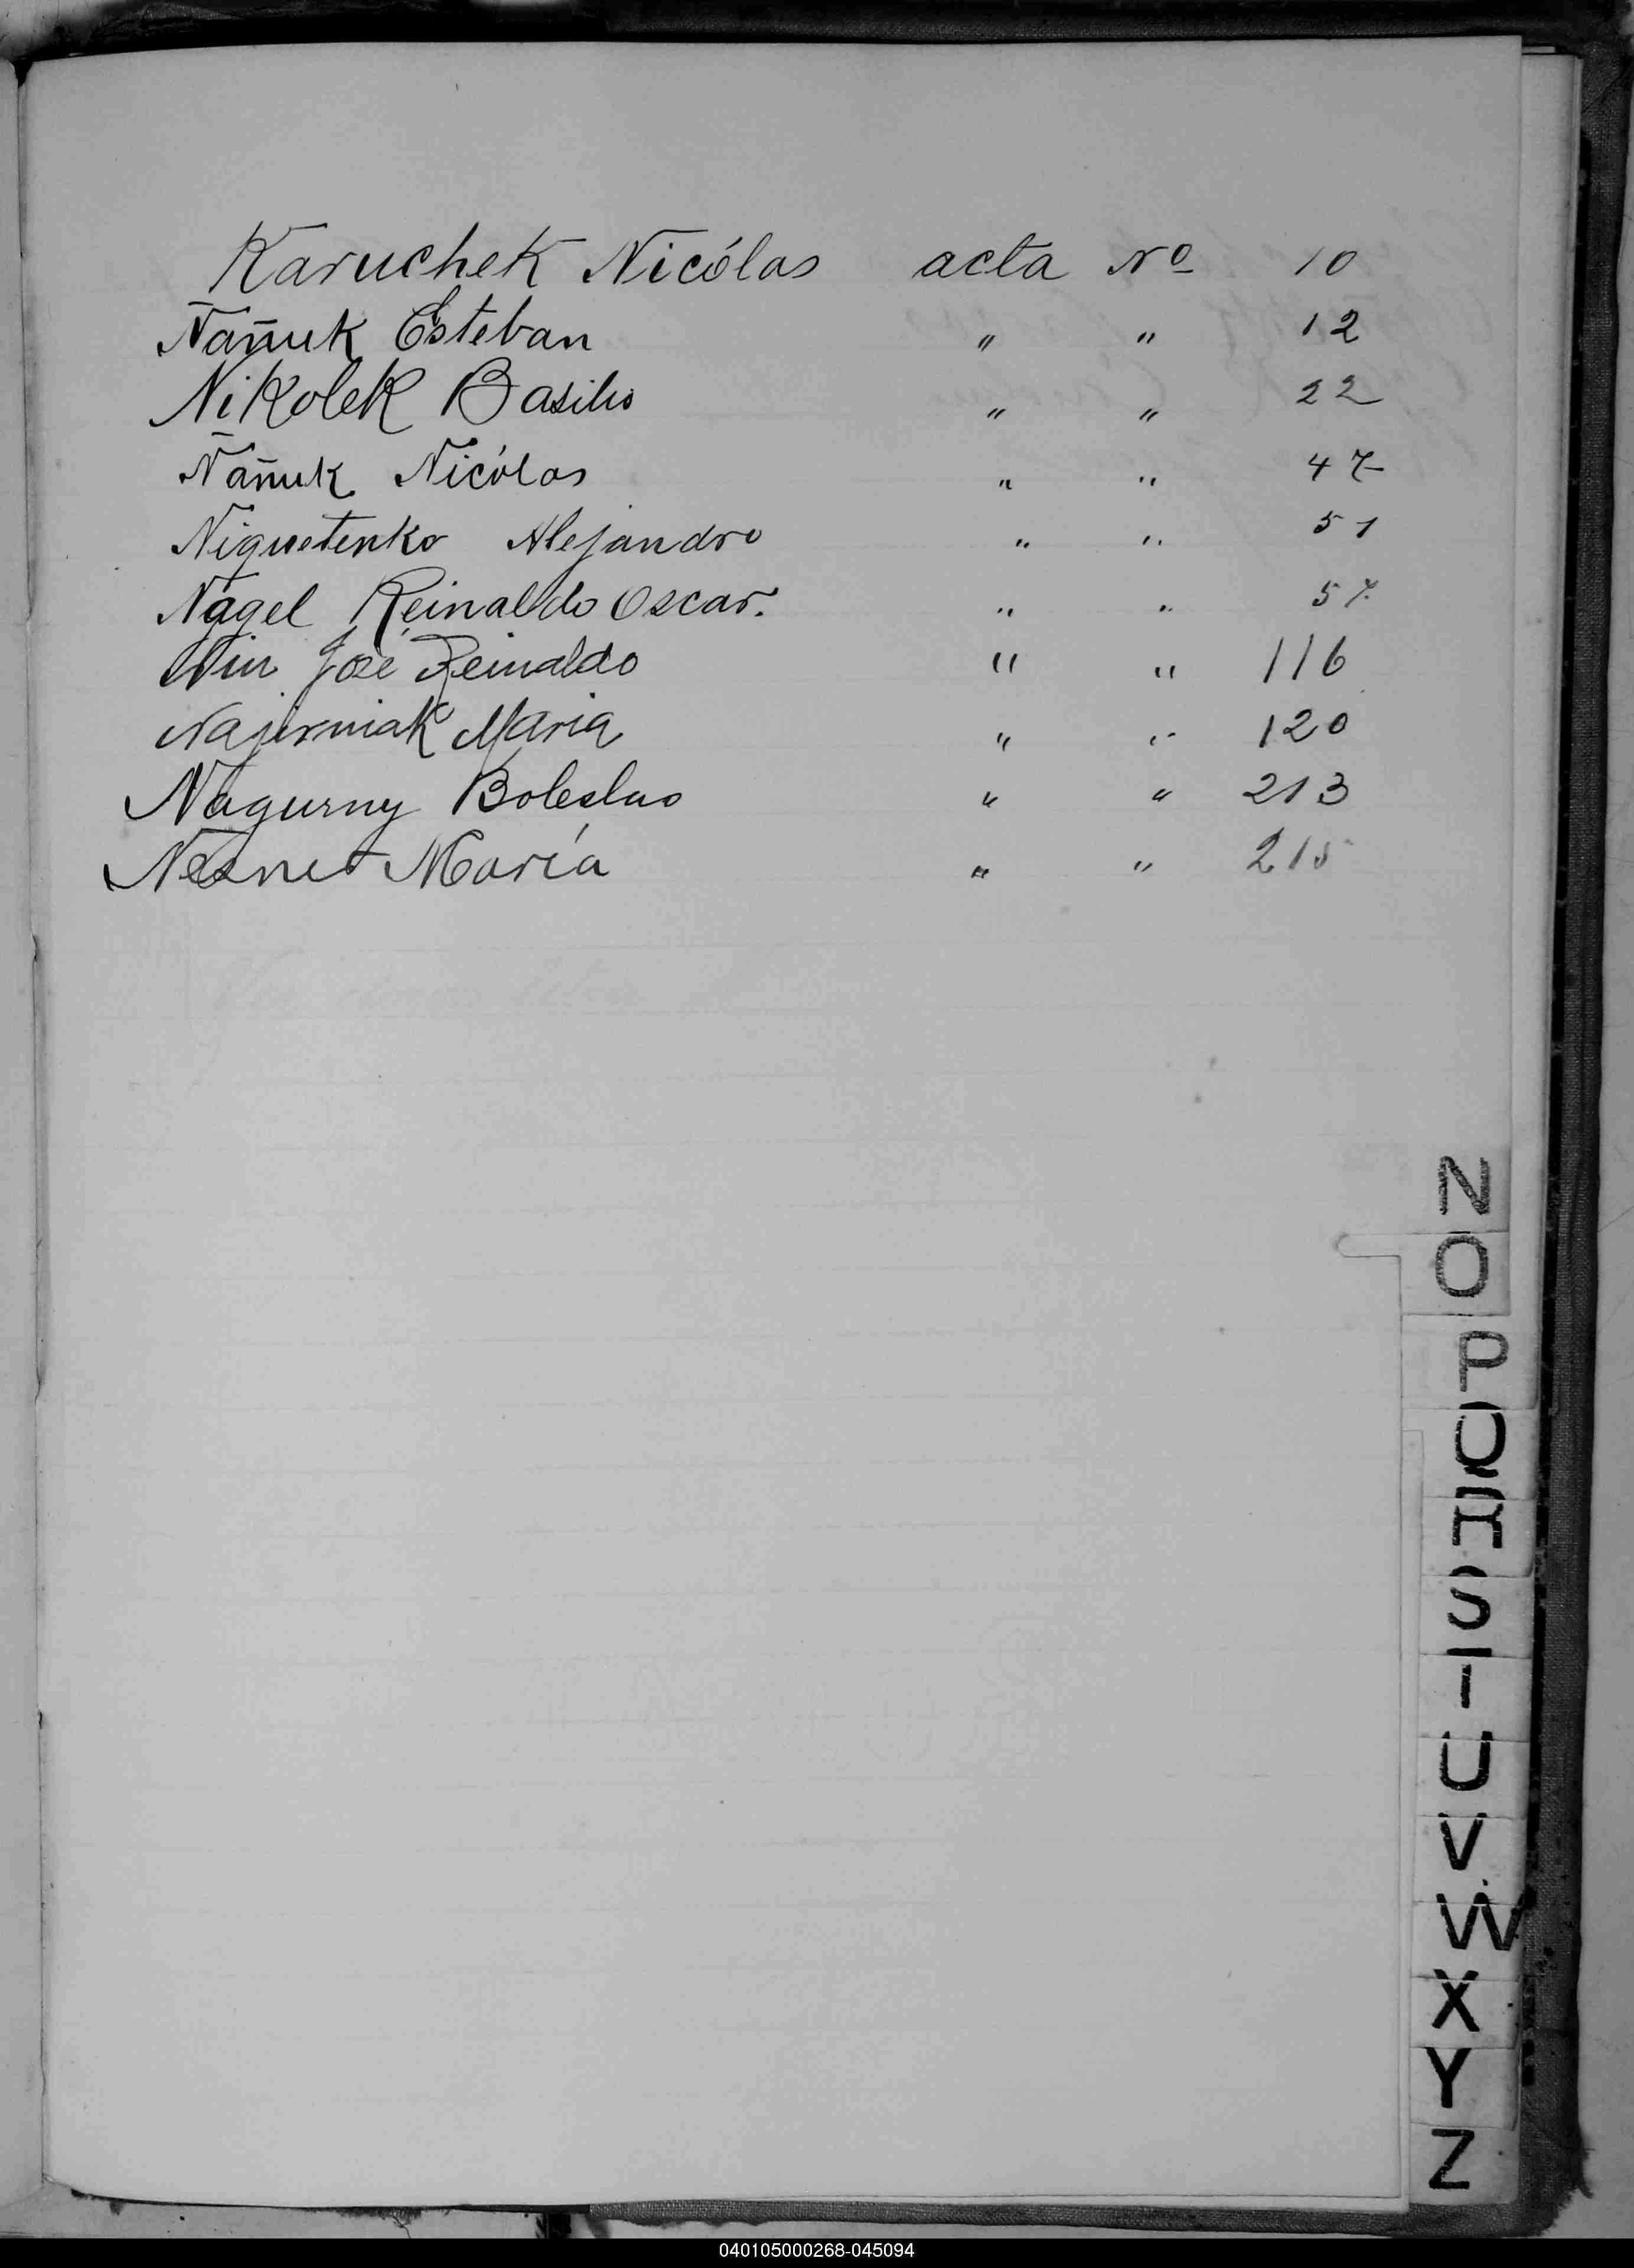 Karuchek Nicólas acta Nº 10
Ñañuk Esteban " " 12
Nikolek Basilio " " 22
Ñañuk Nicólas " " 47
Niquetenko Alejandro " " 51
Nagel Reinaldo Oscar. " " 57
Nin José Reinaldo " " 116
Najirniak Maria " " 120
Nagurny Boleslao " " 213
María " " 215
N
O
P
Q
R
S
T
U
V
W
X
Y
Z
040105000268-045094